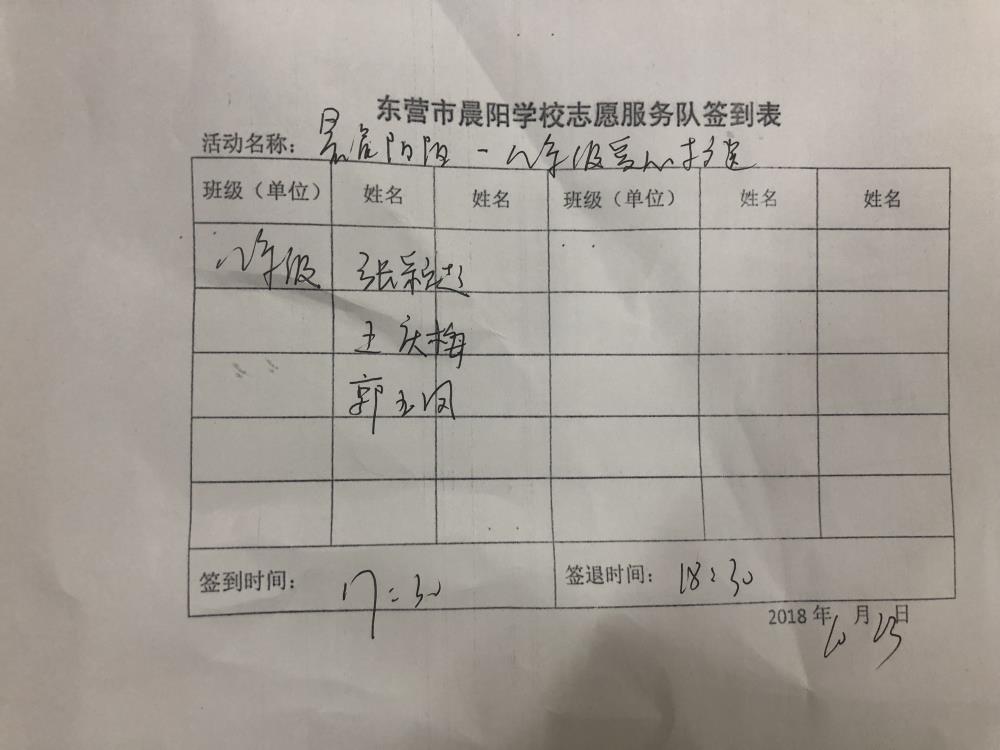 东营市晨阳学校志愿服务队签到表
活动名称： 八年级爱心
班级（单位） 姓名 姓名 班级（单位） 姓名 姓名
八年级 张
王庆梅
郭玉凤
签到时间： 17:30 签退时间： 18:30
2018年10月23日